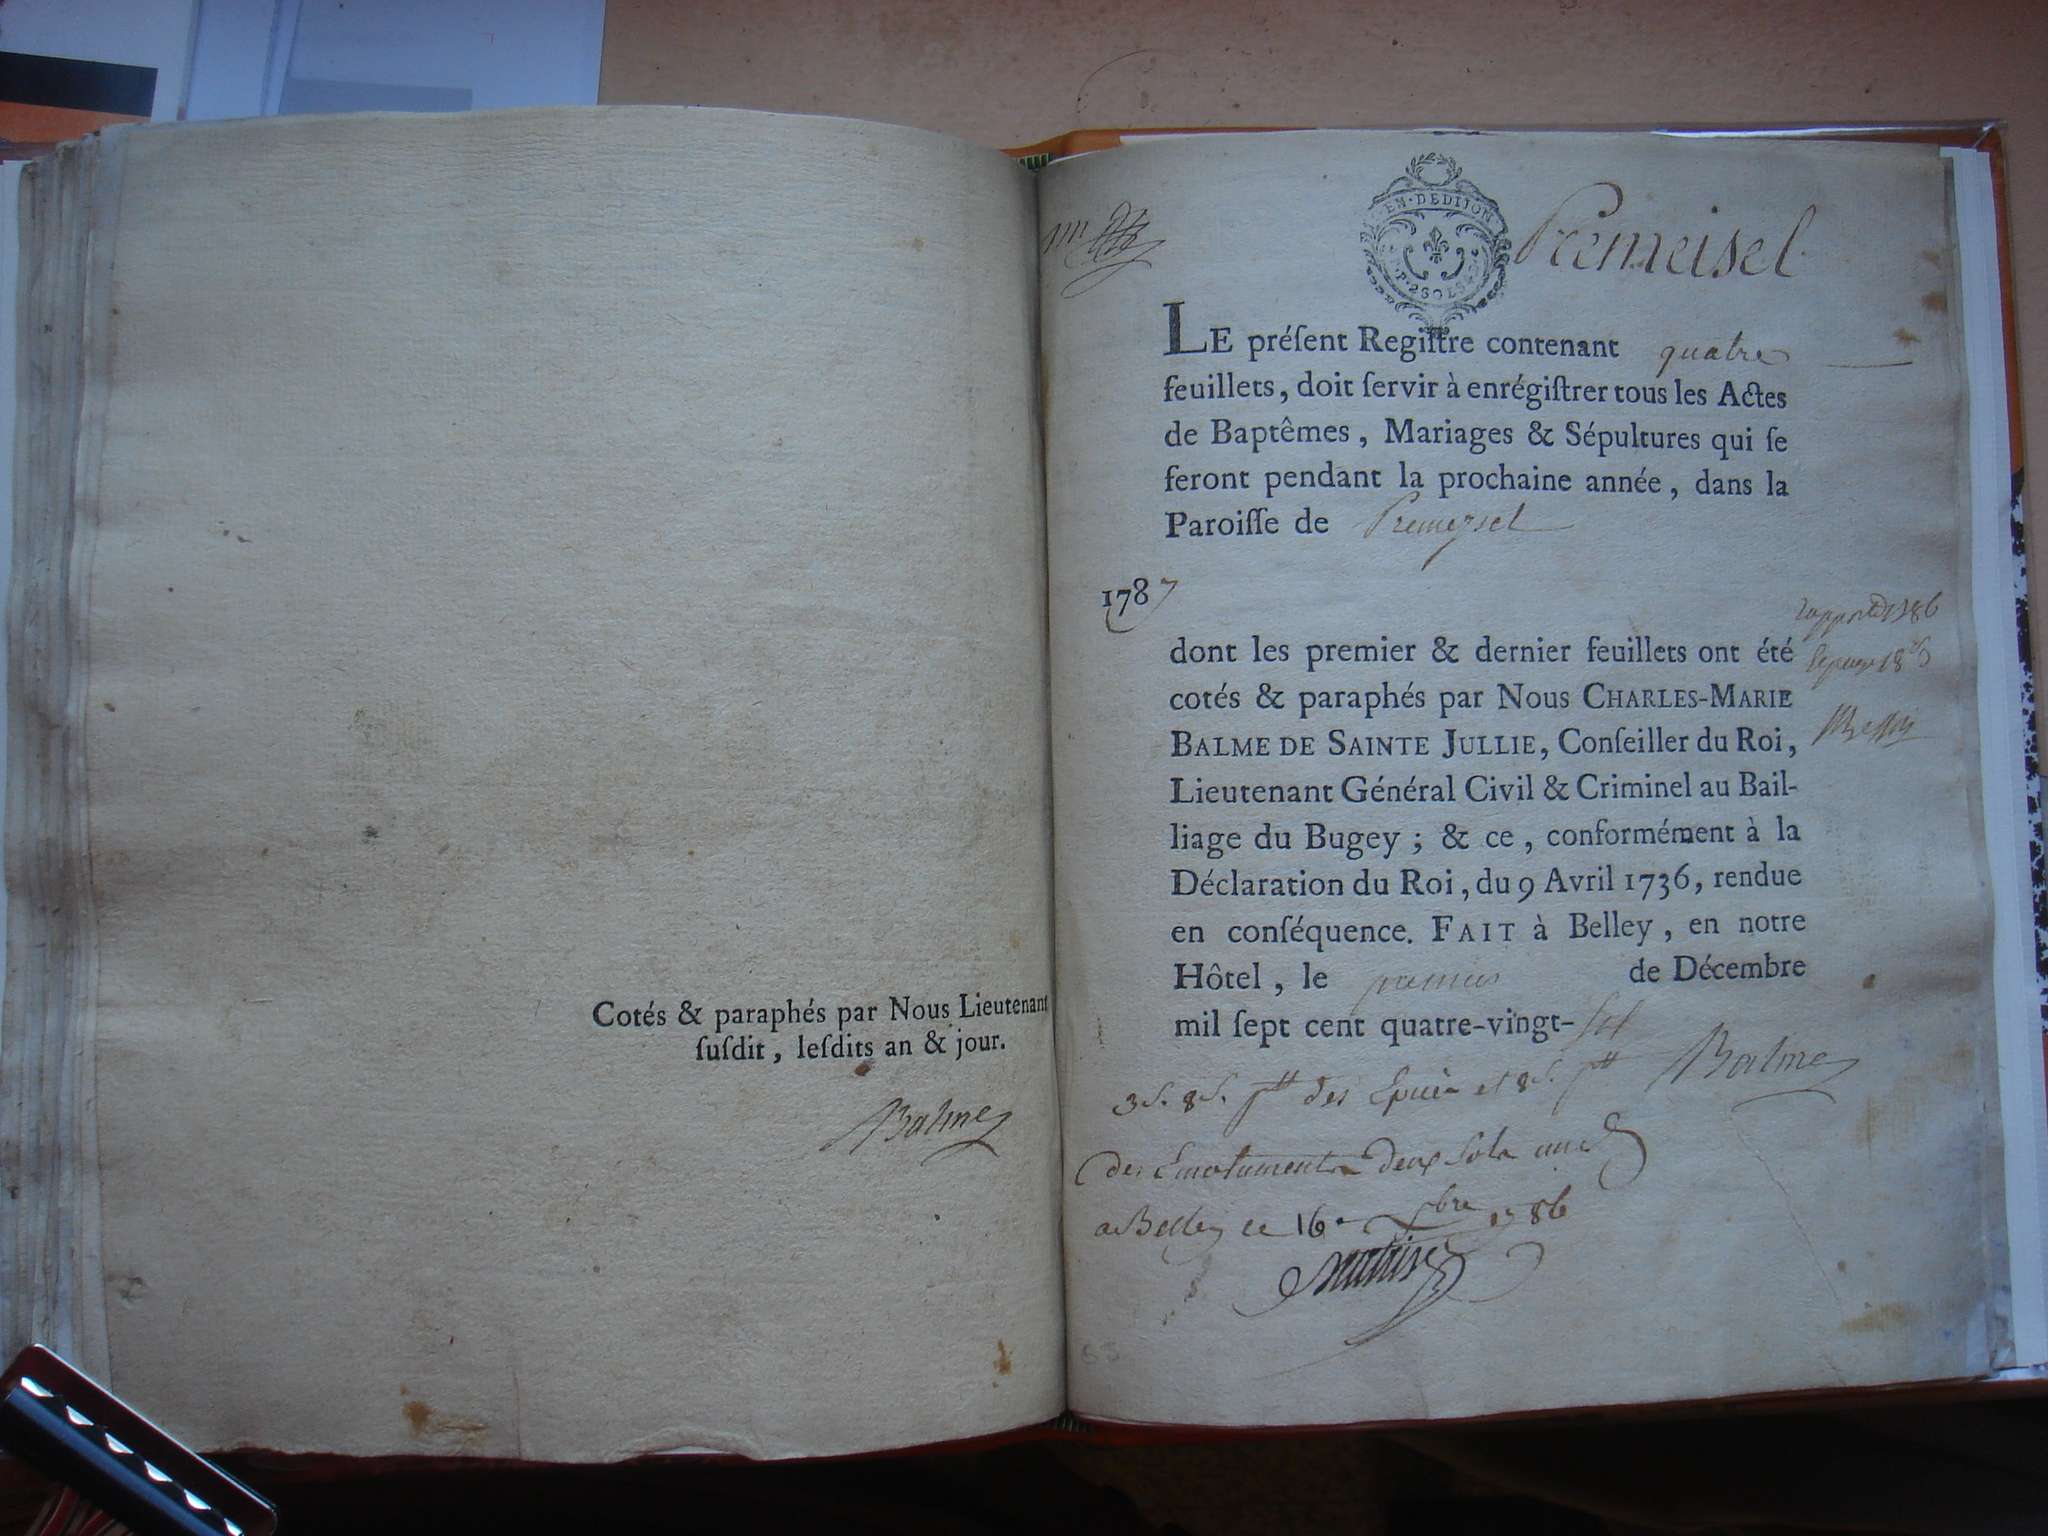 Cotés & paraphés par Nous Lieutenant
ſuſdit, leſdits an & jour.
Balme
EN · DEDIJON
P · 2SOLS
Premeisel
LE préſent Regiſtre contenant quatre
feuillets, doit ſervir à enrégiſtrer tous les Actes
de Baptêmes, Mariages & Sépultures qui ſe
feront pendant la prochaine année, dans la
Paroiſſe de Premeysel
1787
dont les premier & dernier feuillets ont été
cotés & paraphés par Nous CHARLES-MARIE
BALME DE SAINTE JULLIE, Conſeiller du Roi,
Lieutenant Général Civil & Criminel au Bail-
liage du Bugey ; & ce, conformément à la
Déclaration du Roi, du 9 Avril 1736, rendue
en conſéquence. FAIT à Belley, en notre
Hôtel, le premier de Décembre
mil ſept cent quatre-vingt-
Balme
des Emolument Deux Sols
a Belley ce 16e bre 1786